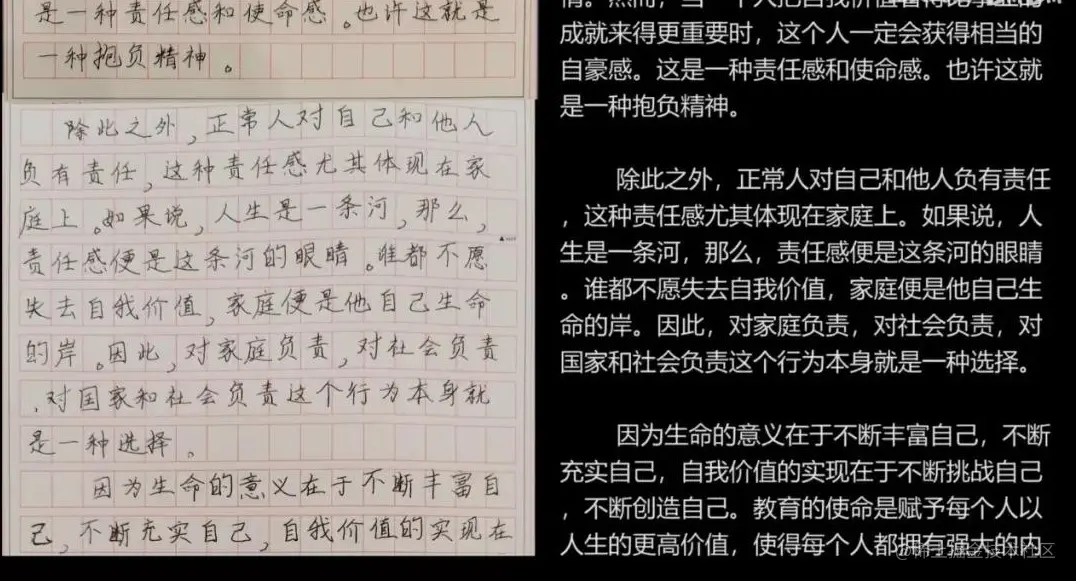 是一种责任感和使命感。也许这就是
一种抱负精神。
除此之外,正常人对自己和他人
负有责任,这种责任感尤其体现在家
庭上。如果说,人生是一条河,那么,
责任感便是这条河的眼睛。谁都不愿
失去自我价值,家庭便是他自己生命
的岸。因此,对家庭负责,对社会负责
,对国家和社会负责这个行为本身就
是一种选择。
因为生命的意义在于不断丰富自
己,不断充实自己,自我价值的实现在
成就来得更重要时,这个人一定会获得相当的
自豪感。这是一种责任感和使命感。也许这就
是一种抱负精神。
除此之外,正常人对自己和他人负有责任
,这种责任感尤其体现在家庭上。如果说,人
生是一条河,那么,责任感便是这条河的眼睛
。谁都不愿失去自我价值,家庭便是他自己生
命的岸。因此,对家庭负责,对社会负责,对
国家和社会负责这个行为本身就是一种选择。
因为生命的意义在于不断丰富自己,不断
充实自己,自我价值的实现在于不断挑战自己
,不断创造自己。教育的使命是赋予每个人以
人生的更高价值,使得每个人都拥有强大的内
@稀土掘金技术社区